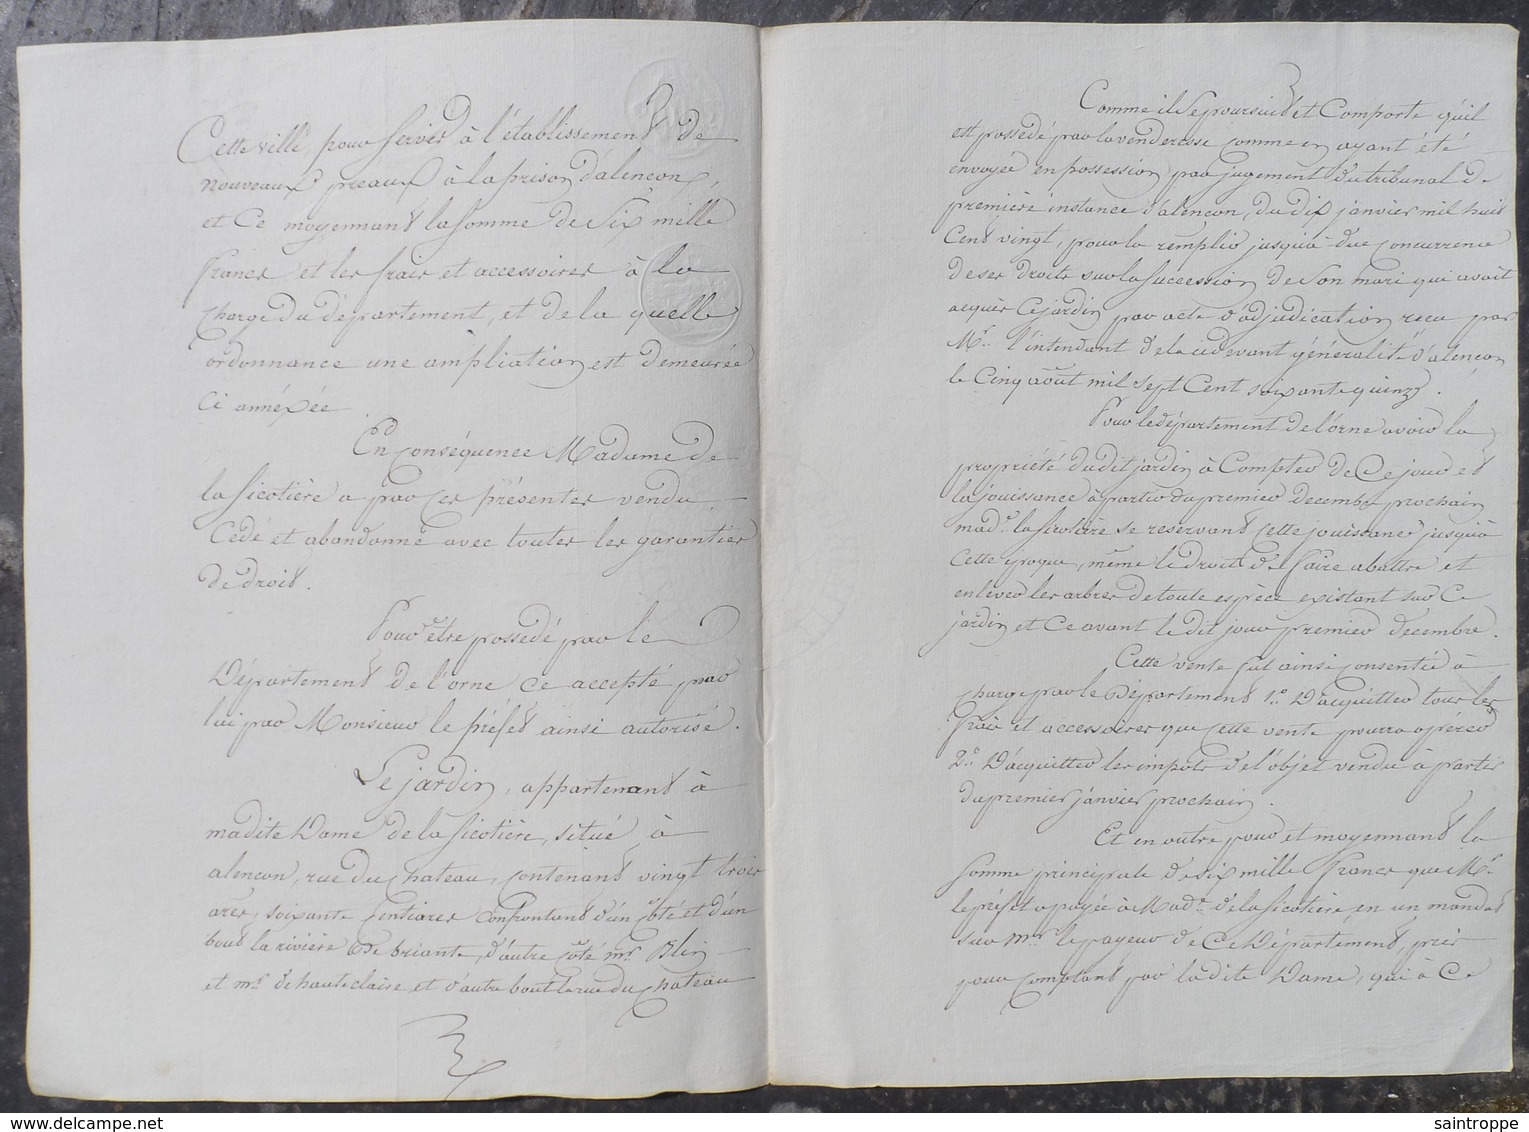 Cette ville pour servir à l'établissement de
nouveaux préaux à la prison d'alençon,
et Ce moyennant la somme de Six mille
francs et les frais et accessoires à la
charge du département, et de la quelle
ordonnance une ampliation est demeurée
Ci annéxée.
En conséquence Madame de
la Sicotière a par ces présentes vendu
Cédé et abandonné avec toutes les garanties
de droit.
Pour être possedé par le
Département de l'orne ce accepté par
lui par Monsieur le préfet ainsi autorisé.
Le jardin, appartenant à
madite Dame de la Sicotière, situé à
alençon, rue du Chateau, contenant vingt trois
ares, soixante Centiares Confrontant d'un côté et d'un
bout la rivière de briante, d'autre côté mr. Blin
et mr. de hauteclaire, et d'autre bout la rue du Chateau
Comme il se poursuit et Comporte qu'il
est possédé par la venderesse comme en ayant été
envoyée en possession par jugement du tribunal de
première instance d'alençon, du dix janvier mil huit
Cent vingt, pour la remplir jusqu'à due concurrence
de ses droits sur la succession de Son mari qui avait
acquis Ce jardin par acte d'adjudication reçu par
Mr. l'intendant de la ci devant généralité d'alençon
le Cinq août mil sept Cent soixante quinze.
Pour le département de l'orne avoir la
propriété dudit jardin à Compter de Ce jour et
la jouissance à partir du premier decembre prochain
made. la Sicotière se reservant cette jouissance jusqu'à
Cette époque, même le droit de faire abattre et
enlever les arbres de toute espèce existant sur Ce
jardin et Ce avant le dit jour premier decembre.
Cette vente fut ainsi consentie à
Charge par le Département 1º. D'acquitter tous les
frais et accessoires que cette vente pourra opérer
2º. D'acquitter les impots de l'objet vendu à partir
du premier janvier prochain.
Et en outre pour et moyennant la
Somme principale de six mille francs que Mr.
le préfet a payée à Made. de la Sicotière, en un mandat
sur Mr. le payeur de Ce Département, pris
pour comptant par ladite Dame, qui à Ce
saintroppe